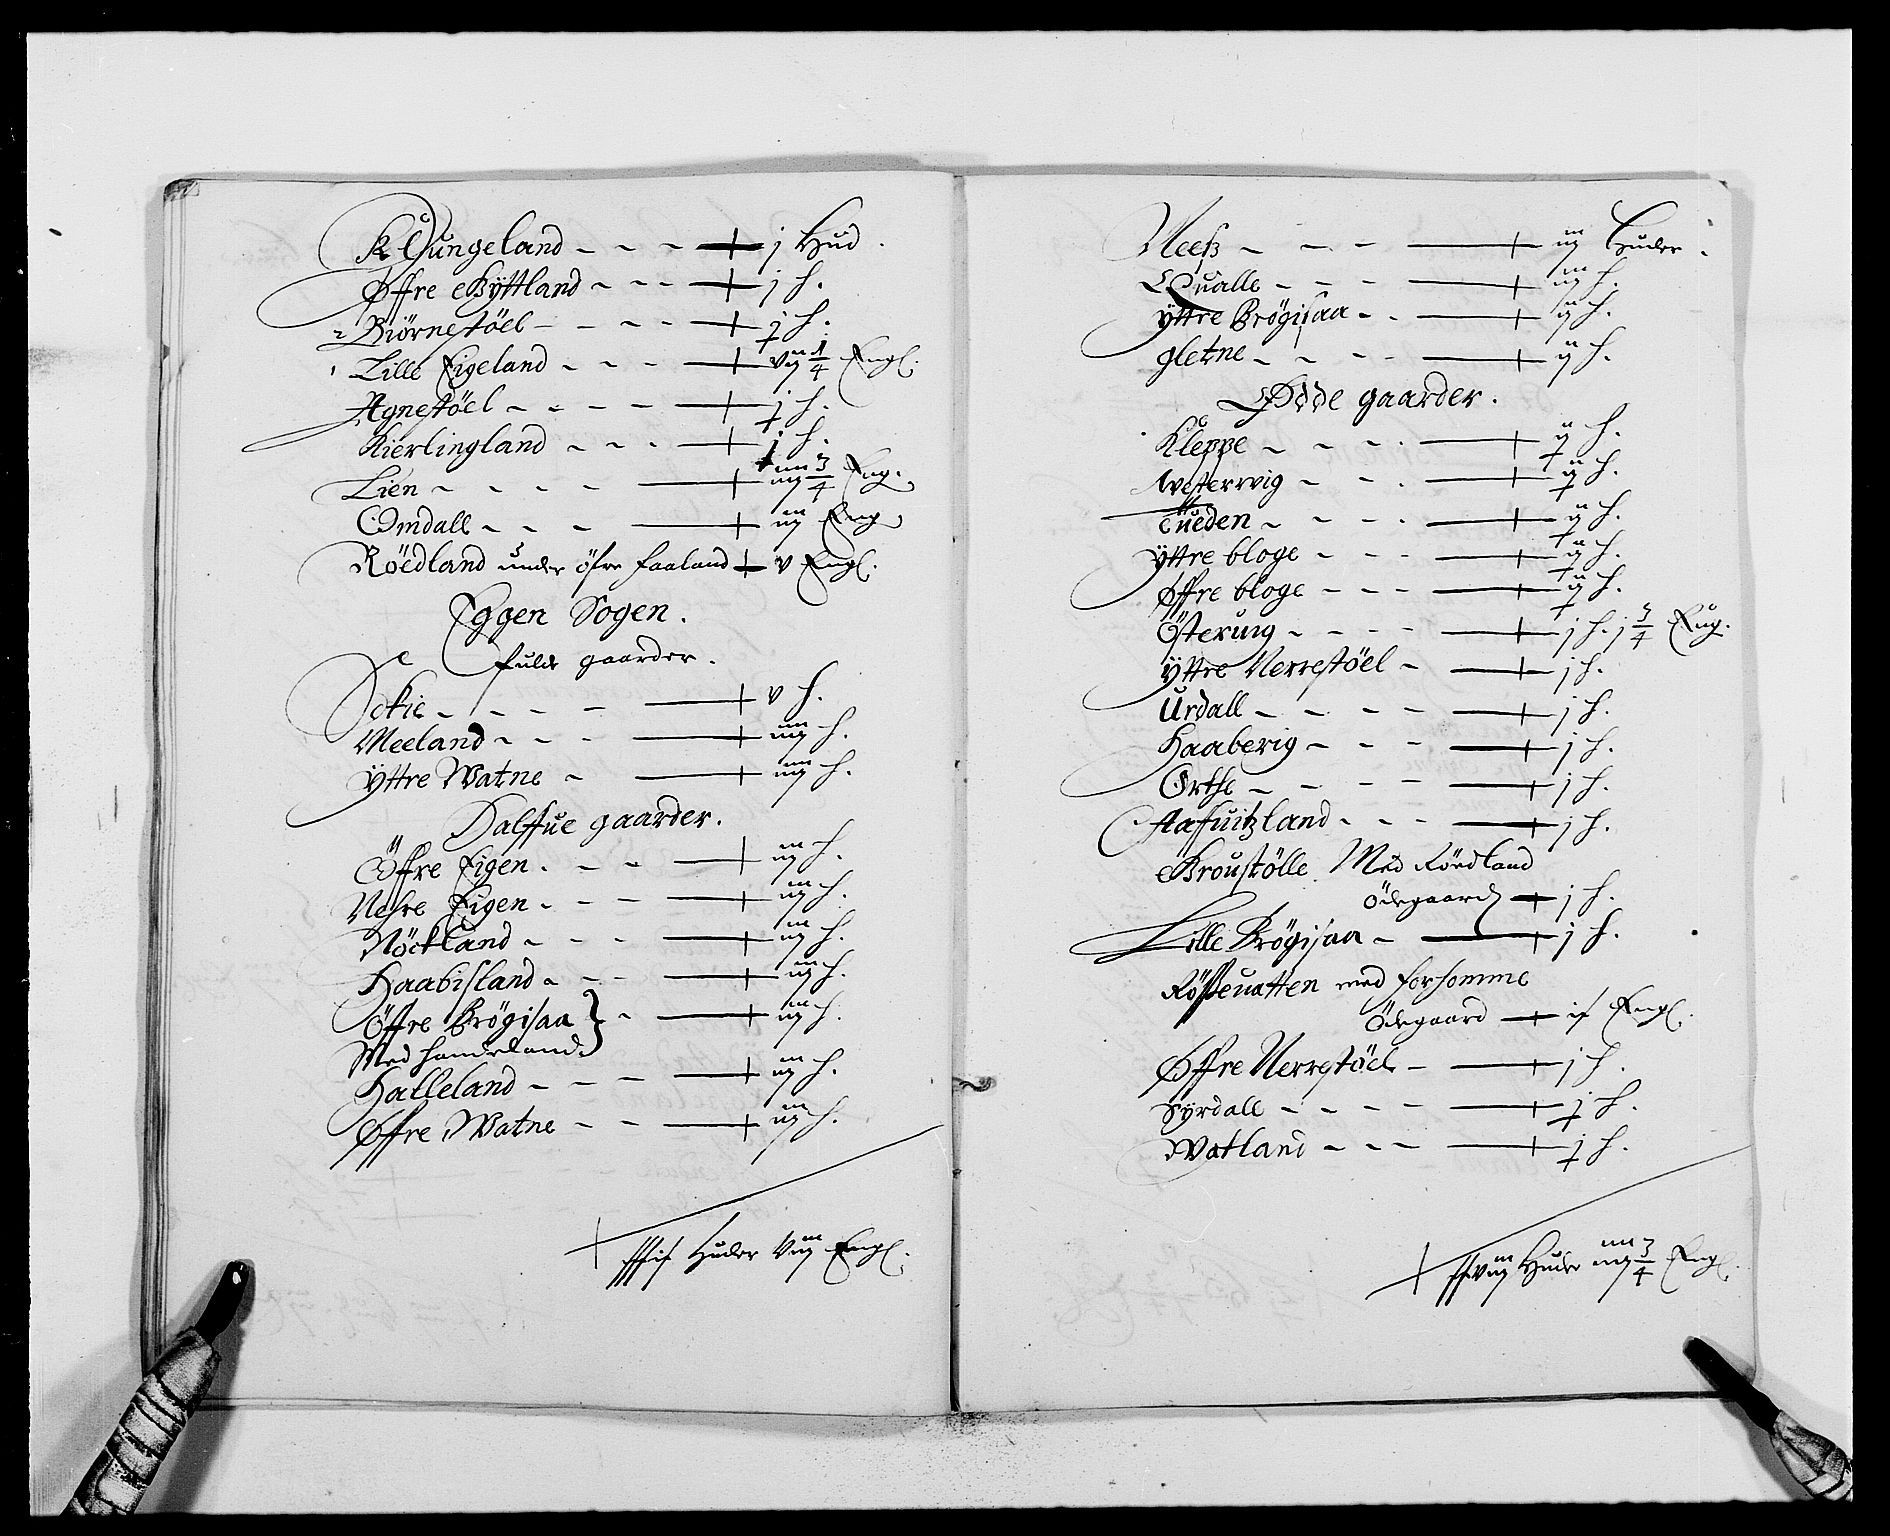 Kliungeland - - - j Hud.
Øffre Byttland - - - j h.
Biörnestöel - - - - j h.
Lille Eigeland - - - vij 1/4 Engl.
Agnestöel - - - - j h.
Kierlingland - - - j h.
Lien - - - - iiij 3/4 Eng.
Omdall - - - iij Eng
Röedland under öfre faaland v Engl.
Eggen Sogen.
fulde gaarder.
- - - - v h.
Meeland - - - iiij h.
Yttre Watne - iiij h.
Halffue gaarder.
Öffre Eigen. - - - iij h.
Nehre Eigen. - - - iij h.
Nöckland - - - - iij h.
Haabisland - - - iij h.
Öffre Brögisaa } - - iij h.
Med handeland.
Halleland - - - iij h.
Øffre Watne - - iij h.
Huder Viij Engl.
Meeß - - - iij Huder.
Qualle - - - iij h.
Yttre Brögisaa - - ij h.
gletne - - - - ij h.
Øde gaarder.
Kleppe - - - . ij h.
Westervig - - - . ij h.
Tueden - - - . ij h.
Yttre bloge - - - ij h.
Øffre bloge - - - ij h.
Österuig - - - - j h. j 3/4 Eng.
Yttre Nerrestöel - j h.
Urdall - - - - j h.
Haaberig - - - j h.
Orthe - - - - j h.
Stafuitzland - - - j h.
Broustölle. Med Röedland
Ödegaard j h.
Lille Brögisaa - j h.
Rösseuatten med forhomme
Ödegaard Engl.
Øffre Nerrestöel - j h.
Syrdall - - - - j h.
Watland - - - j h.
Huder iiij 3/4 Engl.